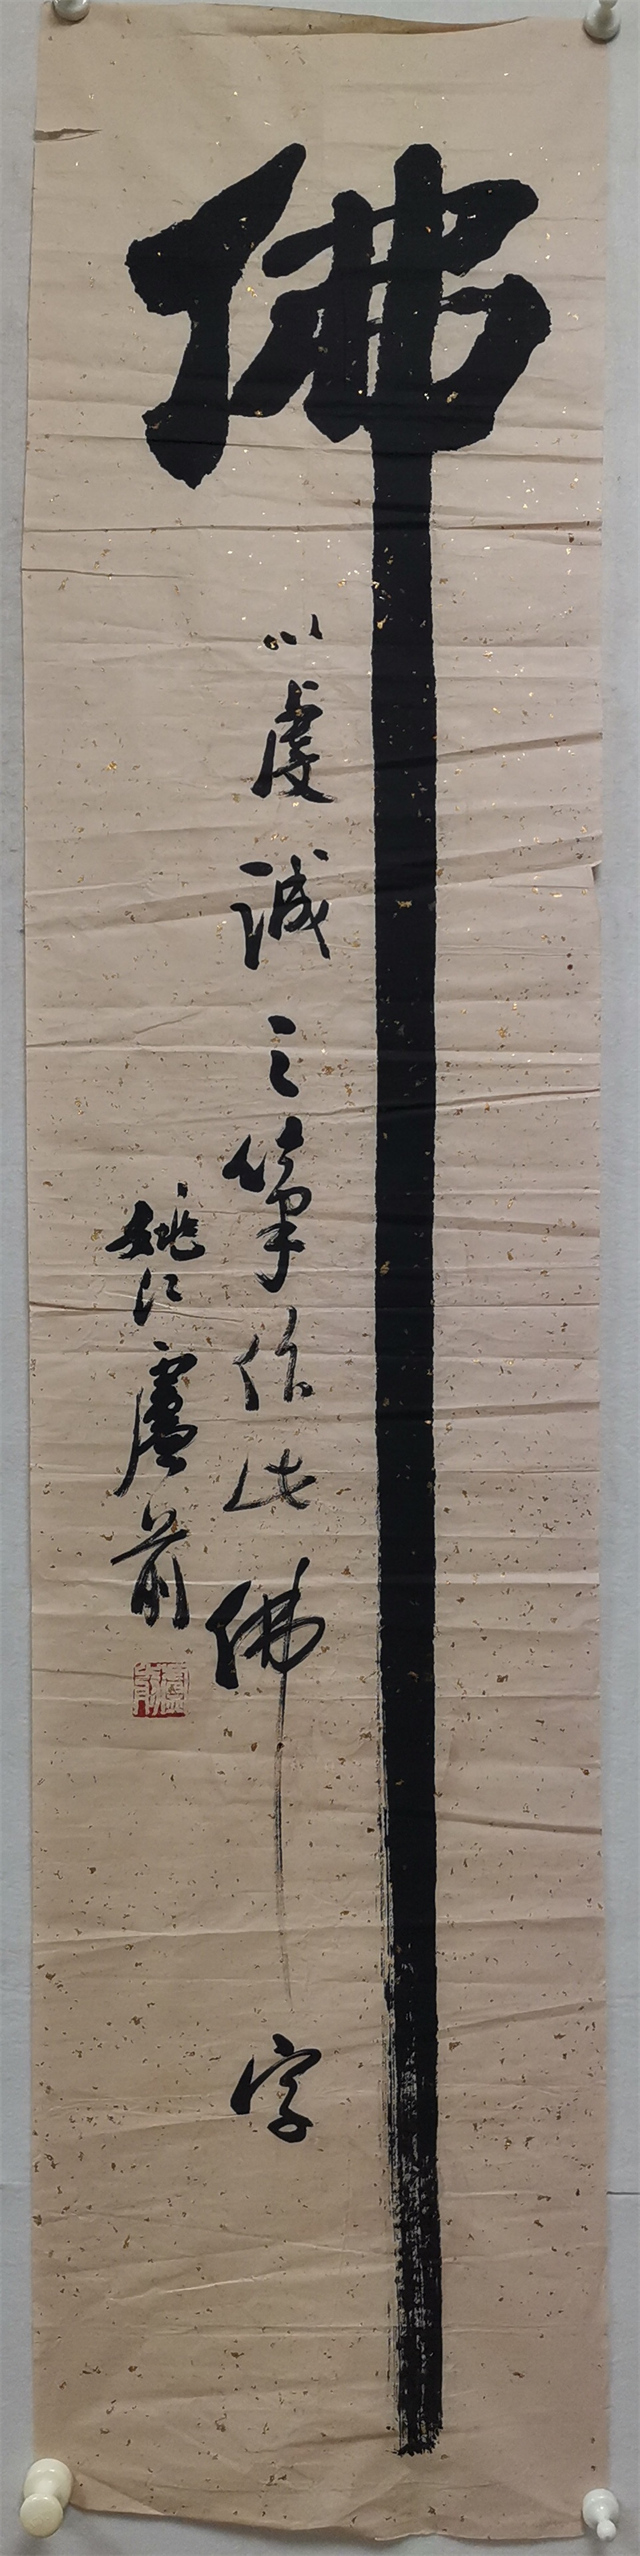 佛
以虔誠之筆作此佛字
姚江盧前
盧前